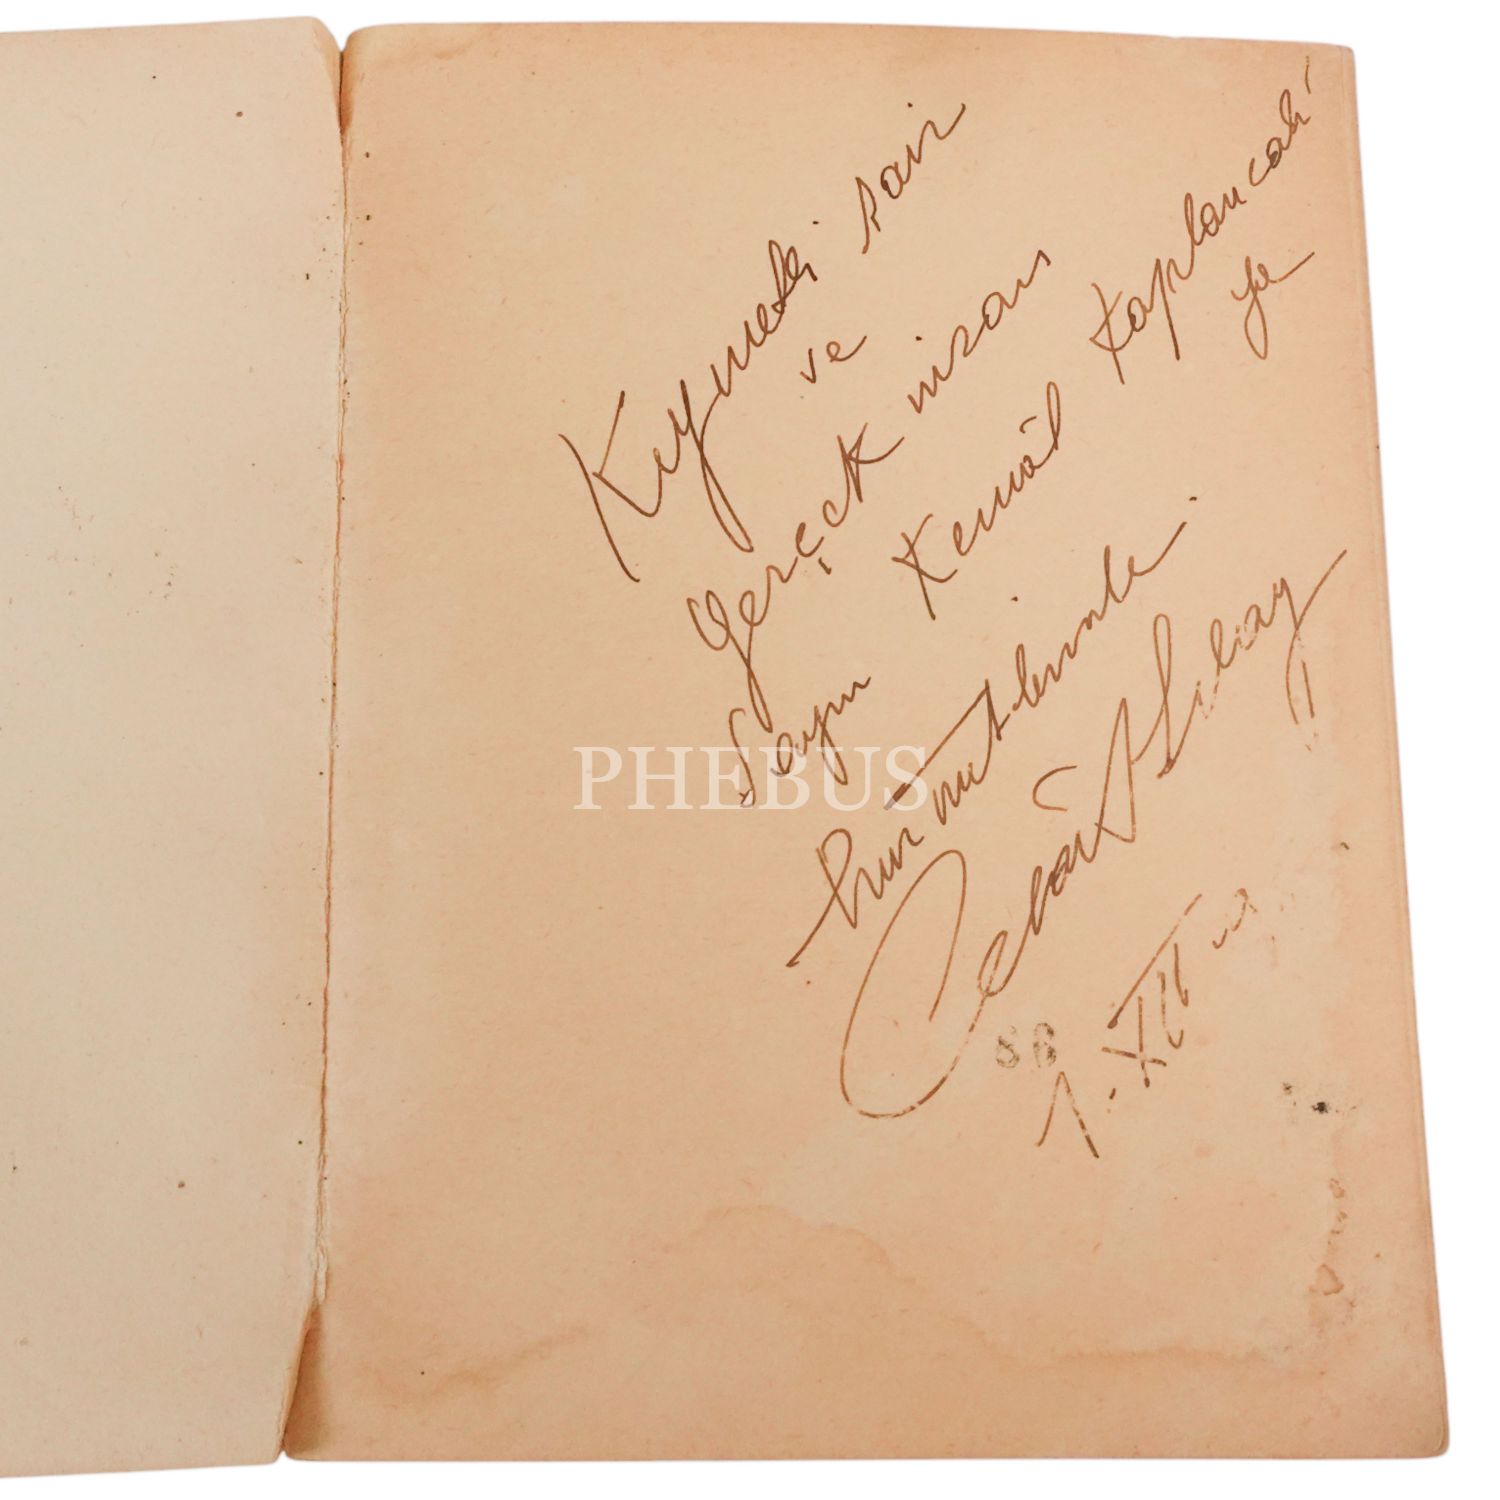 Kıymetli şair
ve
Gerçek nizan
Sayın Kemâl Kaplancalı
ya
hürmetlerimle.
Celâl Sılay
1.XII
PHEBUS